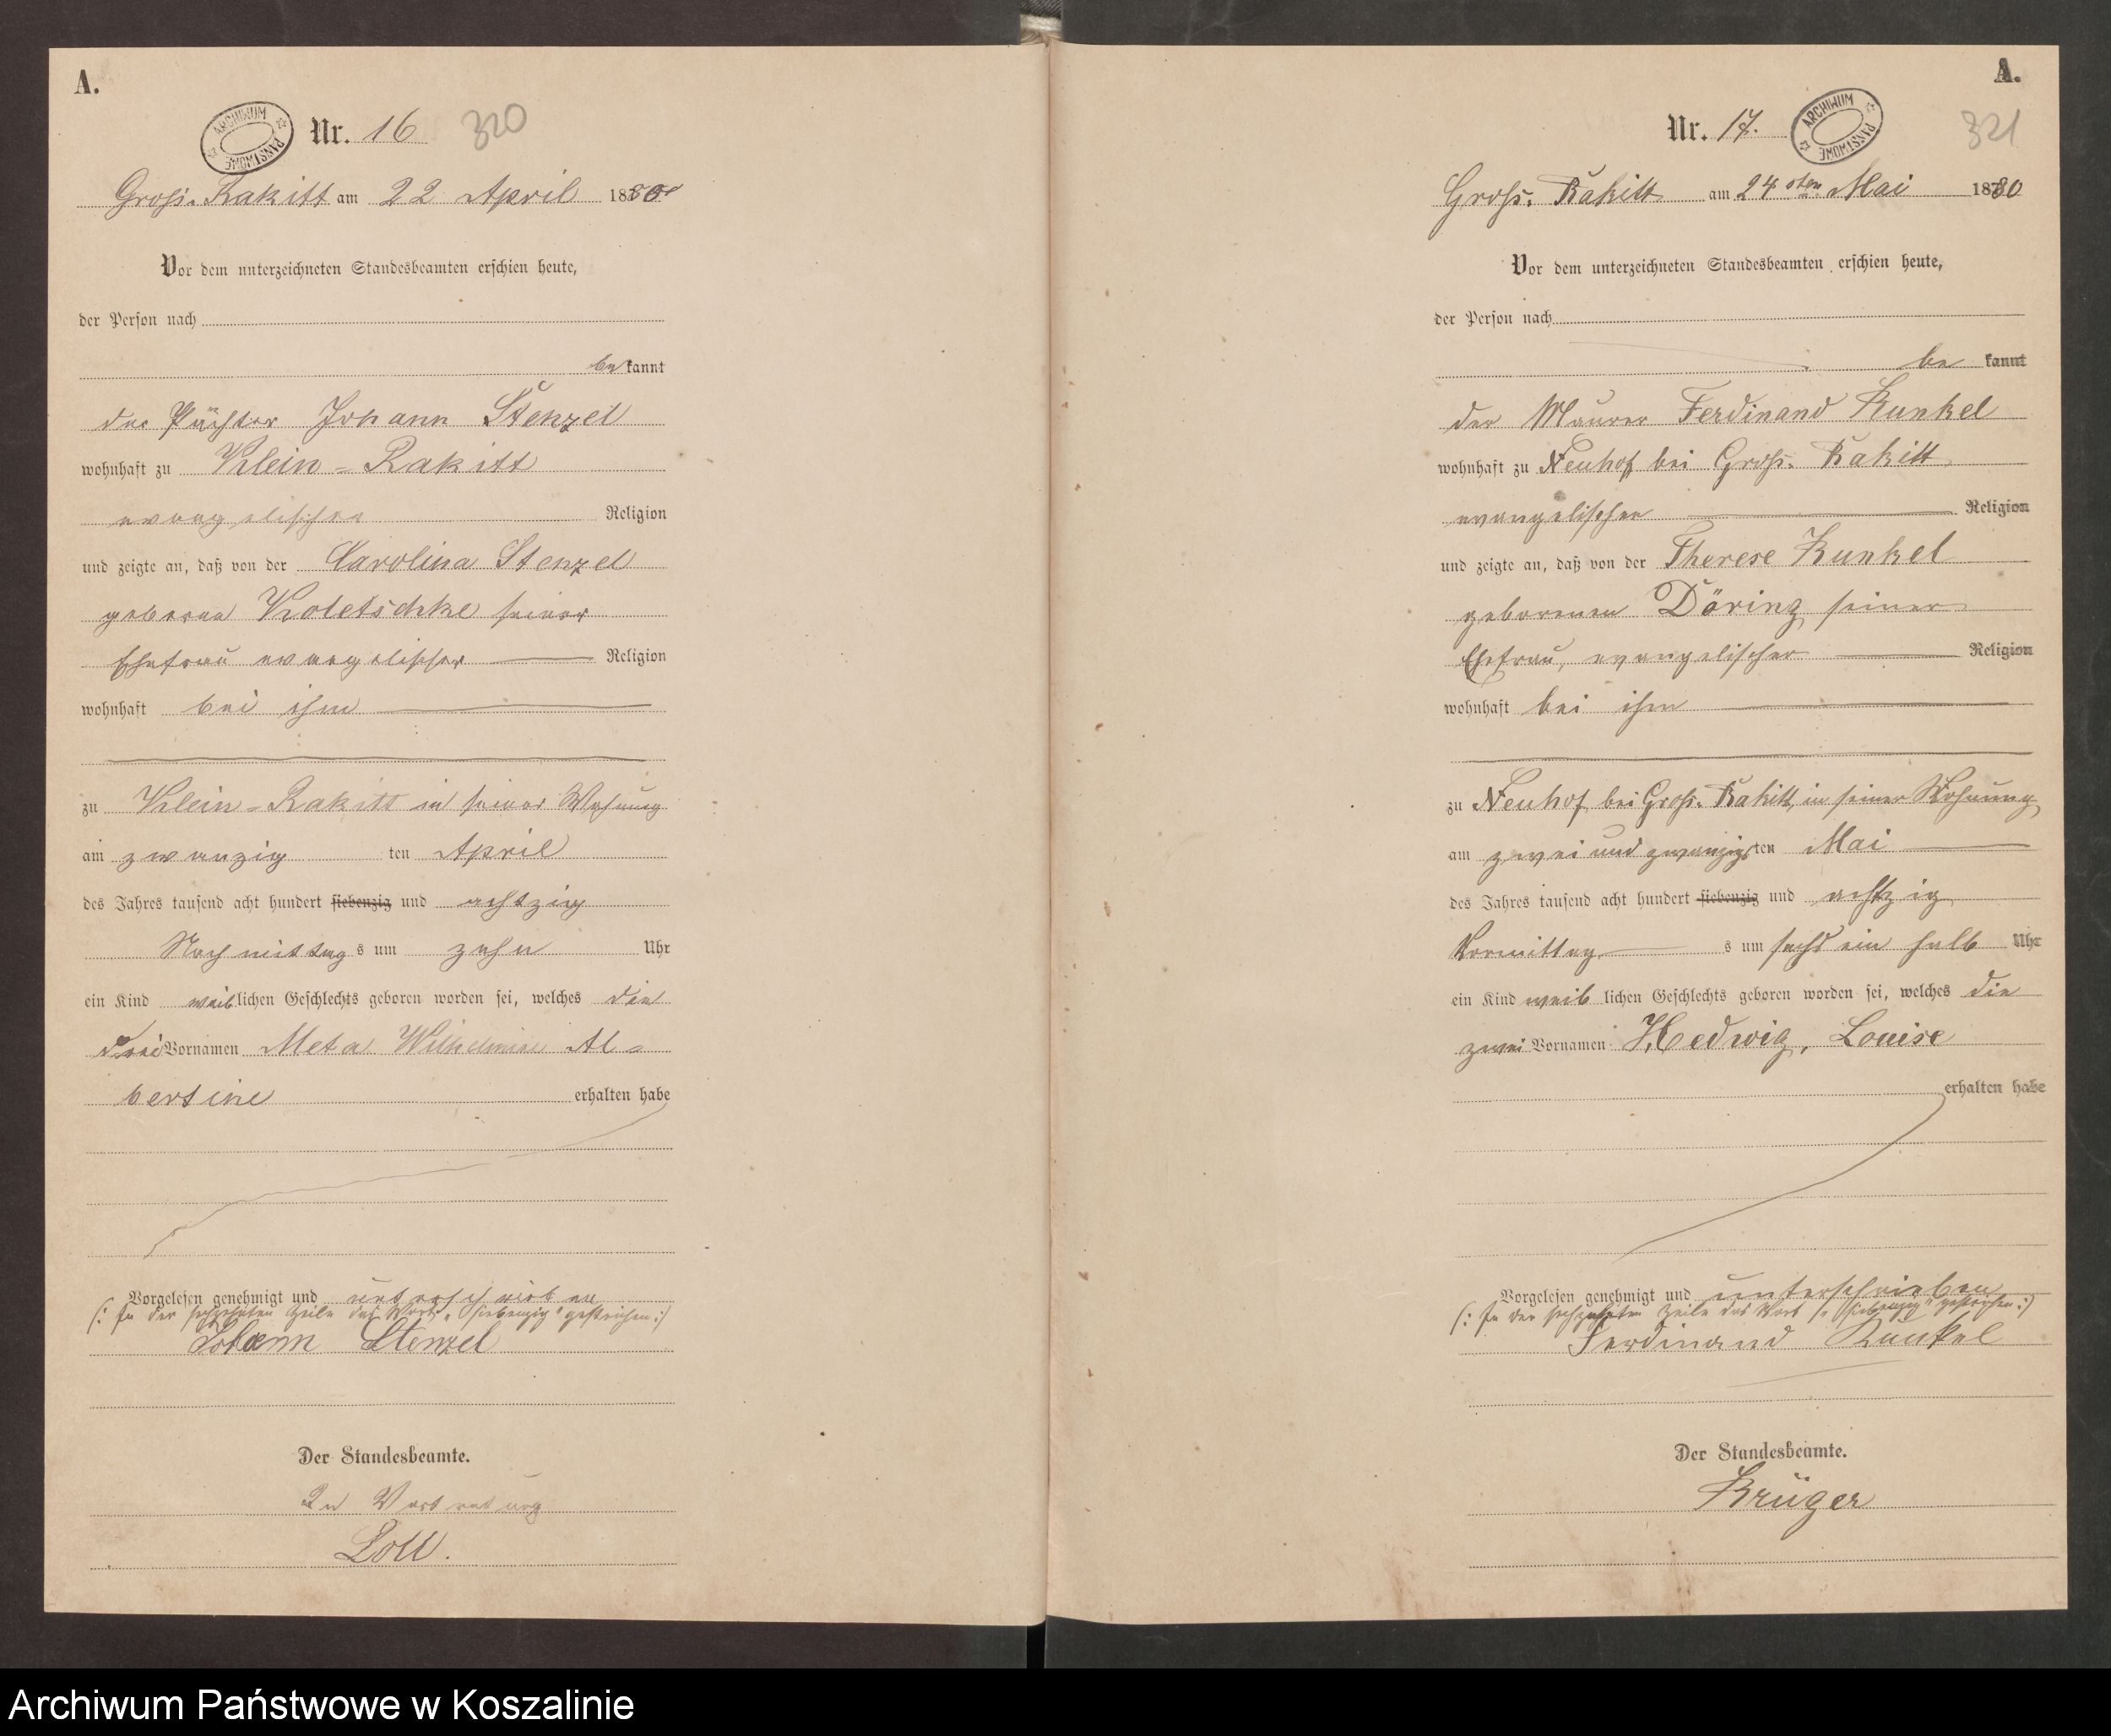 A.
ARCHIWUM PAŃSTWOWE
Nr. 16
320
Groß-Rakitt am 22 April 1880
Vor dem unterzeichneten Standesbeamten erschien heute,
der Person nach
be kannt
der Pächter Johann Stenzel
wohnhaft zu Klein-Rakitt
evangelischer Religion
und zeigte an, daß von der Carolina Stenzel
geborne Koletschke seiner
Ehefrau evangelischer Religion
wohnhaft bei ihm
zu Klein-Rakitt in seiner Wohnung
am zwanzig ten April
des Jahres tausend acht hundert siebenzig und achtzig
Nachmittag s um zehn Uhr
ein Kind weib lichen Geschlechts geboren worden sei, welches die
drei Vornamen Meta Wilhelmine Al-
bertine erhalten habe
Vorgelesen genehmigt und unterschrieben
(: In der sechzehnten Zeile das Wort „siebenzig“ gestrichen :)
Johann Stenzel
Der Standesbeamte.
In Vertretung
Loll.
A.
Nr. 17.
ARCHIWUM PAŃSTWOWE
321
Groß-Rakitt am 24sten Mai 1880
Vor dem unterzeichneten Standesbeamten erschien heute,
der Person nach
be kannt
der Maurer Ferdinand Kunkel
wohnhaft zu Neuhof bei Groß-Rakitt
evangelischer Religion
und zeigte an, daß von der Therese Kunkel
geborenen Döring seiner
Ehefrau, evangelischer Religion
wohnhaft bei ihm
zu Neuhof bei Groß-Rakitt, in seiner Wohnung
am zwei und zwanzigsten Mai
des Jahres tausend acht hundert siebenzig und achtzig
Vormittag s um sechs ein halb Uhr
ein Kind weib lichen Geschlechts geboren worden sei, welches die
zwei Vornamen Hedwig, Louise
erhalten habe
Vorgelesen genehmigt und unterschrieben
(: In der sechzehnten Zeile das Wort „siebenzig“ gestrichen :)
Ferdinand Kunkel
Der Standesbeamte.
Krüger
Archiwum Państwowe w Koszalinie